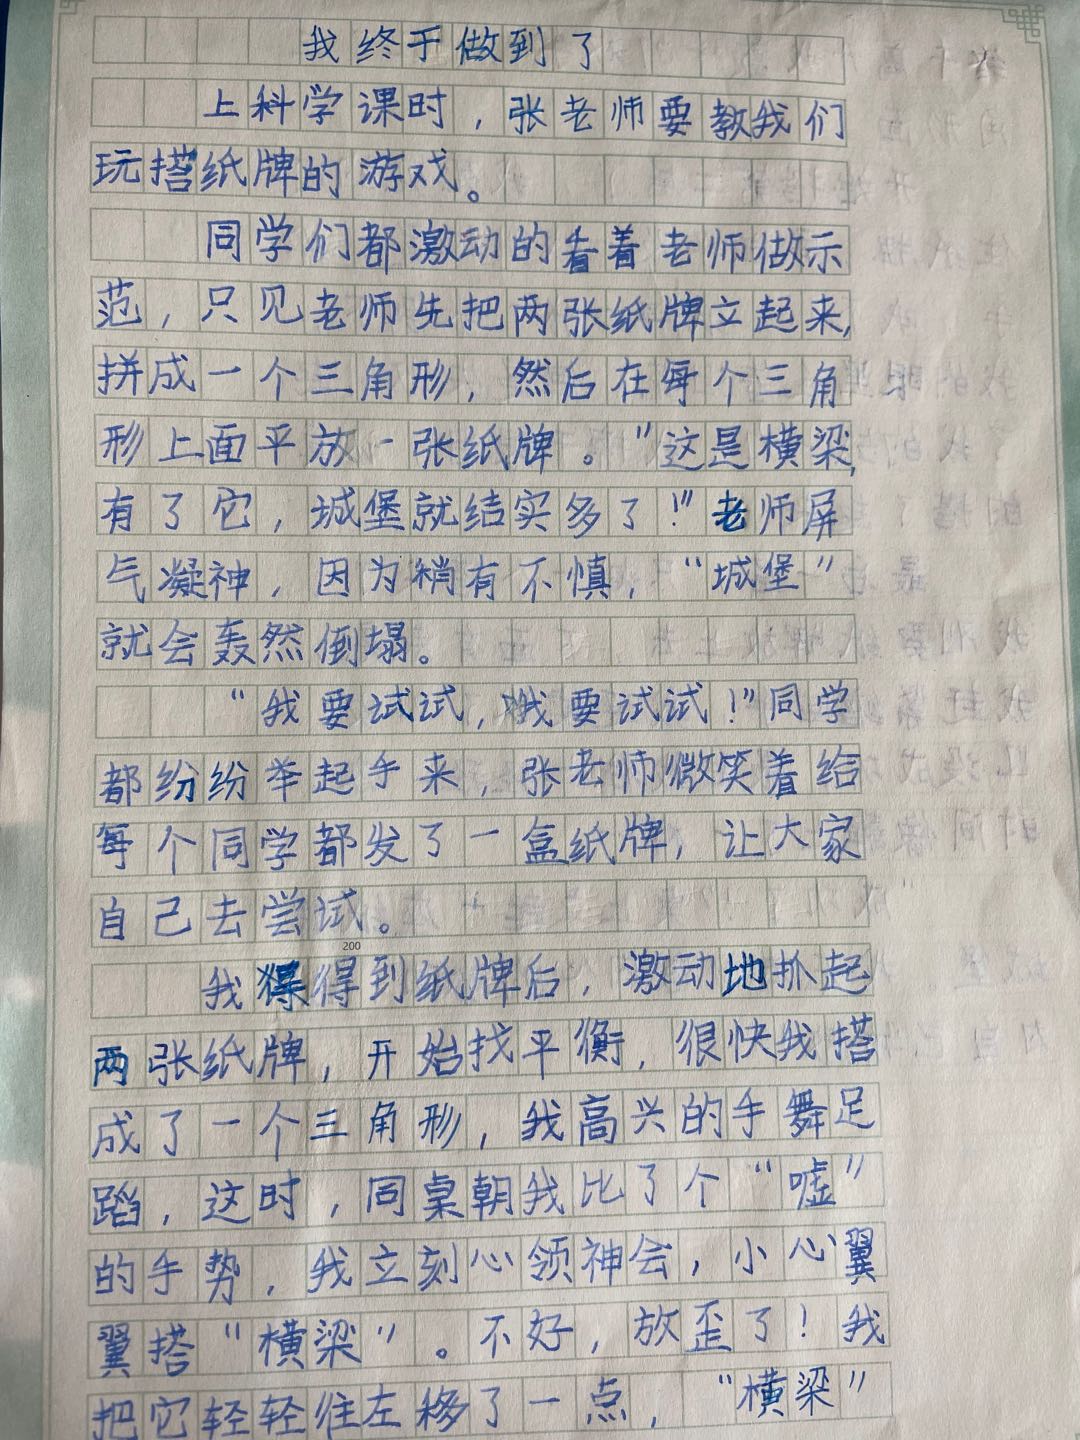 我终于做到了
上科学课时，张老师要教我们
玩搭纸牌的游戏。
同学们都激动的看着老师做示
范，只见老师先把两张纸牌立起来，
拼成一个三角形，然后在每个三角
形上面平放一张纸牌。"这是横梁，
有了它，城堡就结实多了！"老师屏
气凝神，因为稍有不慎，"城堡"
就会轰然倒塌。
"我要试试，我要试试！"同学
都纷纷举起手来，张老师微笑着给
每个同学都发了一盒纸牌，让大家
自己去尝试。
200
我得到纸牌后，激动地抓起
两张纸牌，开始找平衡，很快我搭
成了一个三角形，我高兴的手舞足
蹈，这时，同桌朝我比了个"嘘"
的手势，我立刻心领神会，小心翼
翼搭"横梁"。不好，放歪了！我
把它轻轻往左移了一点，"横梁"